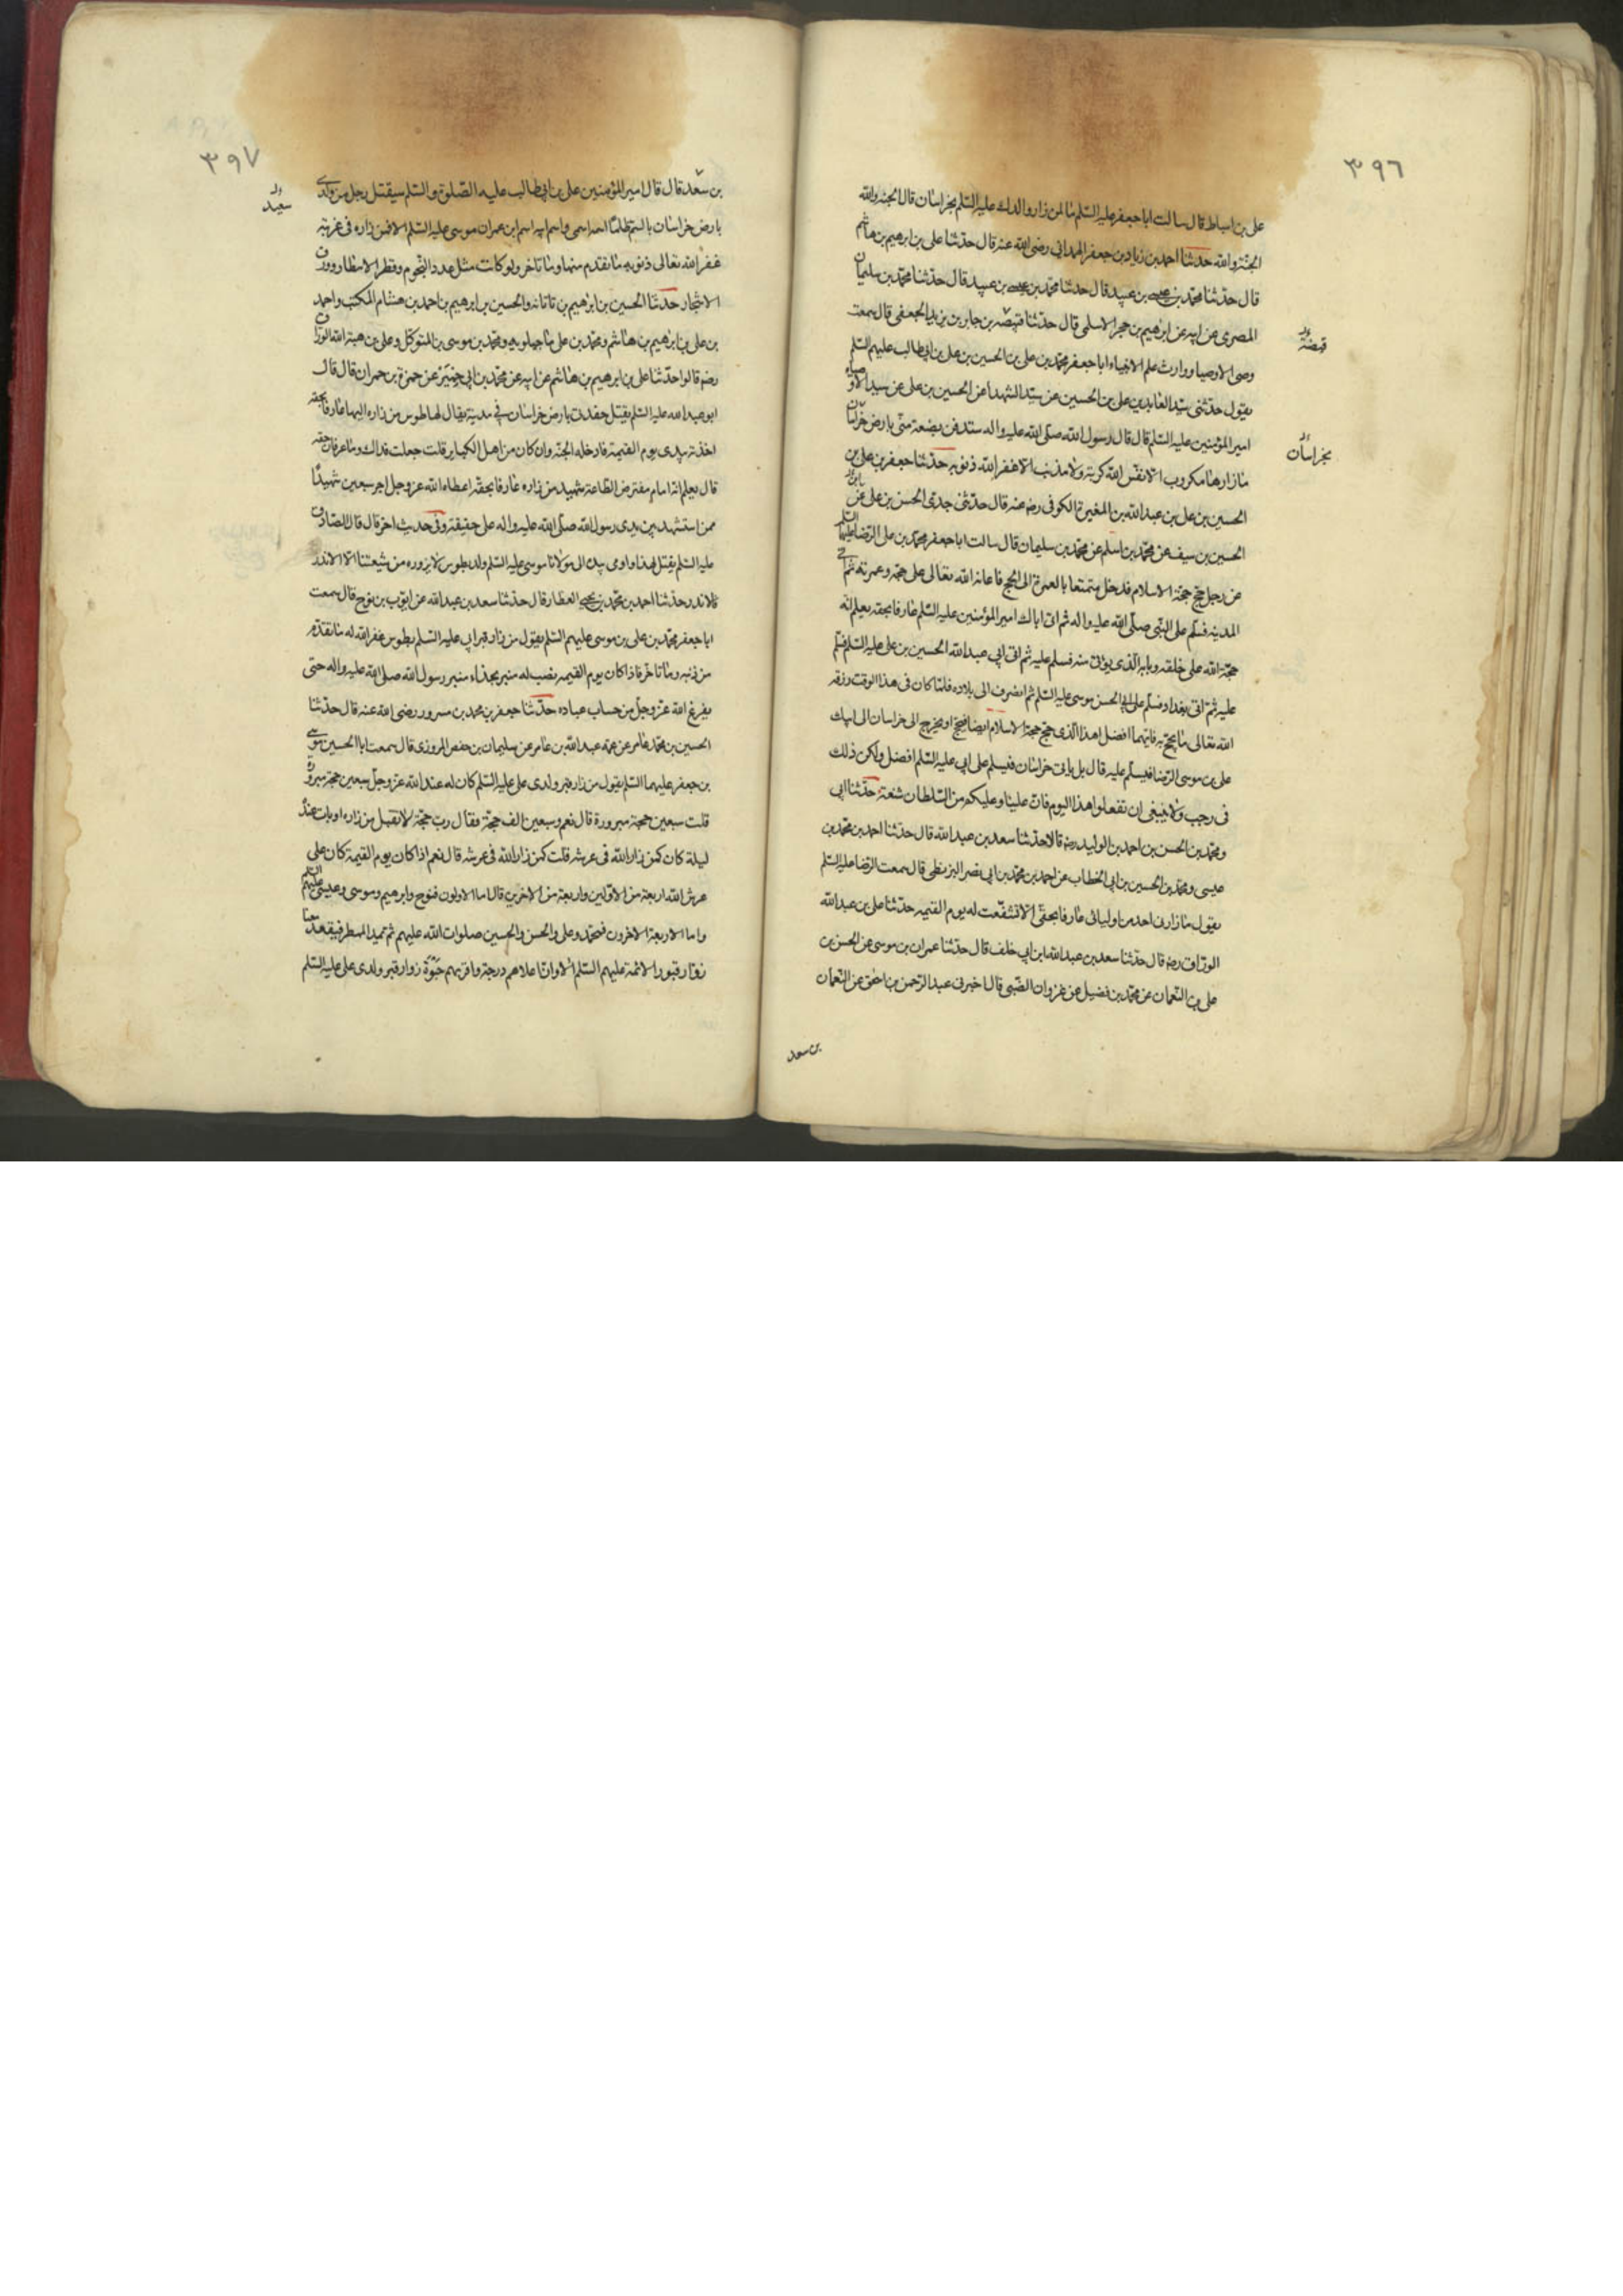 ٣٩٦
على بن اسباط قال سالت ابا جعفر عليه السّلم ما لمن زار والدك عليه السّلم بخراسان قال الجنه والله
الجنّة والله حدثنا احمد بن زياد بن جعفر الهمدانى رضى الله عنه قال حدّثنا على بن ابرهيم بن هاشم
قال حدّثنا محمّد بن عيسى بن عبيد قال حدثنا محمّد بن عيسى بن عبيد قال حدّثنا محمّد بن سليمان
المصرى عن ابيه عن ابرهيم بن حجر الاسلمى قال حدّثنا قبيصه بن جابر بن يزيد الجعفى قال سمعت
قبيضة
وصى الاوصيا ووارث علم الانبياء ابا جعفر محمّد بن على بن الحسين بن على بن ابيطالب عليهم السّلم
يقول حدّثنى سيّد العابدين على بن الحسين عن سيّد الشهدا عن الحسين بن على عن سيد الاوصياء
امير المؤمنين عليه السّلم قال قال رسول الله صلّى الله عليه واله ستدفن بضعة منّى بارض خراسان
بخراسان
ما زارها مكروب الا نفّس الله كربته ولا مذنب الا غفر الله ذنوبه حدّثنا جعفر بن على بن
الحسين بن على بن عبدالله بن المغيرة الكوفى رضه عنه قال حدّثنى جدى الحسن بن على عن
الحسين بن سيف عن محمّد بن اسلم عن محمّد بن سليمان قال سالت ابا جعفر محمّد بن على الرّضا عليهما السّلم
عن رجل حج حجّة الاسلام فدخل متمتعا بالعمرة الى الحج فاعانه الله تعالى على حجّه وعمرته ثم اتى
المدينه فسلّم على النّبى صلّى الله عليه واله ثم اتى اباك امير المؤمنين عليه السّلم عارفا بحقه يعلم انّه
حجّة الله على خلقه وبابه الّذى يؤتى منه فسلم عليه ثم اتى ابى عبدالله الحسين بن على عليه السّلم فسلّم
عليه ثم اتى بغداد فسلّم على ابى الحسن موسى عليه السّلم ثم انصرف الى بلاده فلمّا كان فى هذا الوقت رزقه
الله تعالى ما يحجّ به فايّهما افضل اهذا الّذى حجّ حجة الاسلام ايضا فيحج او يخرج الى خراسان الى ابيك
على بن موسى الرّضا فيسلّم عليه قال بل ياتى خراسان فيسلم على ابى عليه السّلم افضل وليكن ذلك
فى رجب ولا ينبغى ان تفعلوا هذا اليوم فانّ علينا وعليكم من السّلطان شنعة حدّثنا ابى
ومحمّد بن الحسن بن احمد بن الوليد رضه قالا حدّثنا سعد بن عبدالله قال حدّثنا احمد بن محمّد بن
عيسى ومحمّد بن الحسين بن ابى الخطاب عن احمد بن محمّد بن ابى نصر البزنطى قال سمعت الرّضا عليه السّلم
يقول ما زارنى احد من اوليائى عارفا بحقّى الا تشفّعت له يوم القيمه حدّثنا على بن عبدالله
الورّاق رضه قال حدّثنا سعد بن عبدالله ابن ابى خلف قال حدّثنا عمران بن موسى عن الحسن بن
على بن النّعمان عن محمّد بن فضيل عن غزوان الضّبى قال اخبرنى عبد الرّحمن بن اسحٰق عن النّعمان
بن سعد
٣٩٧
بن سعد قال قال امير المؤمنين على بن ابيطالب عليه الصّلوة والسّلم سيقتل رجل من ولدى
سعيد
بارض خراسان بالسم ظلمًا اسمه اسمى واسم ابيه اسم ابن عمران موسى عليه السّلم الا فمن زاره فى غربته
غفر الله تعالى ذنوبه ما تقدم منها وما تاخر ولو كانت مثل عدد النّجوم وقطر الامطار وورق
الاشجار حدّثنا الحسين بن ابرهيم بن تاتانه والحسين بن ابرهيم بن احمد بن هشام المكتب واحمد
بن على بن ابرهيم بن هاشم ومحمّد بن على ماجيلويه ومحمّد بن موسى بن المتوكّل وعلى بن هبة الله الورّاق
رضه قالوا حدّثنا على بن ابرهيم بن هاشم عن ابيه عن محمّد بن ابى عمير عن حمزة بن حمران قال قال
ابو عبدالله عليه السّلم يقتل حفدتى بارض خراسان فى مدينة يقال لها طوس من زاره اليها عارفا بحقه
اخذته بيدى يوم القيمة فادخله الجنّه وان كان من اهل الكباير قلت جعلت فداك وما عرفان حقه
قال يعلم انّه امام مفترض الطّاعة شهيد من زاره عارفا بحقّه اعطاه الله عز وجل اجر سبعين شهيدًا
ممن استشهد بين يدى رسول الله صلّى الله عليه واله على حقيقة وفى حديث اخر قال قال الصّادق
عليه السّلم يقتل لهذا واومى بيده الى مولانا موسى عليه السّلم ولد بطوس لا يزوره من شيعتنا الا الاندر
فالاندر حدّثنا احمد بن محمّد بن يحيى العطار قال حدّثنا سعد بن عبدالله عن ايّوب بن نوح قال سمعت
ابا جعفر محمّد بن على بن موسى عليهم السّلم يقول من زار قبر ابى عليه السّلم بطوس غفر الله له ما تقدّم
من ذنبه وما تاخّر فاذا كان يوم القيمه نصب له منبر بحذاء منبر رسول الله صلى الله عليه واله حتى
يفرغ الله عز وجلّ من حساب عباده حدّثنا جعفر بن محمد بن مسرور رضى الله عنه قال حدّثنا
الحسين بن محمّد عامر عن عمّه عبدالله بن عامر عن سليمان بن حفص المروزى قال سمعت ابا الحسن موسى
بن جعفر عليهما السّلم يقول من زار قبر ولدى على عليه السّلم كان له عند الله عز وجلّ سبعين حجة مبرورة
قلت سبعين حجة مبرورة قال نعم وسبعين الف حجّة فقال رب حجّة لا تقبل من زاره او بات عنده
ليلة كان كمن زار الله فى عرشه قلت كمن زار الله فى عرشه قال نعم اذا كان يوم القيمة كان على
عرش الله اربعة من الاوّلين واربعة من الاخرين قال اما الاولون فنوح وابرهيم وموسى وعيسى عليهم السّلم
واما الاربعة الاخرون فمحمّد وعلى والحسن والحسين صلوات الله عليهم ثم يمد المطمر فيقعد معنا
زوّار قبور الائمة عليهم السّلم الا وانّ اعلاهم درجة واقربهم حبوة زوار قبر ولدى على عليه السّلم